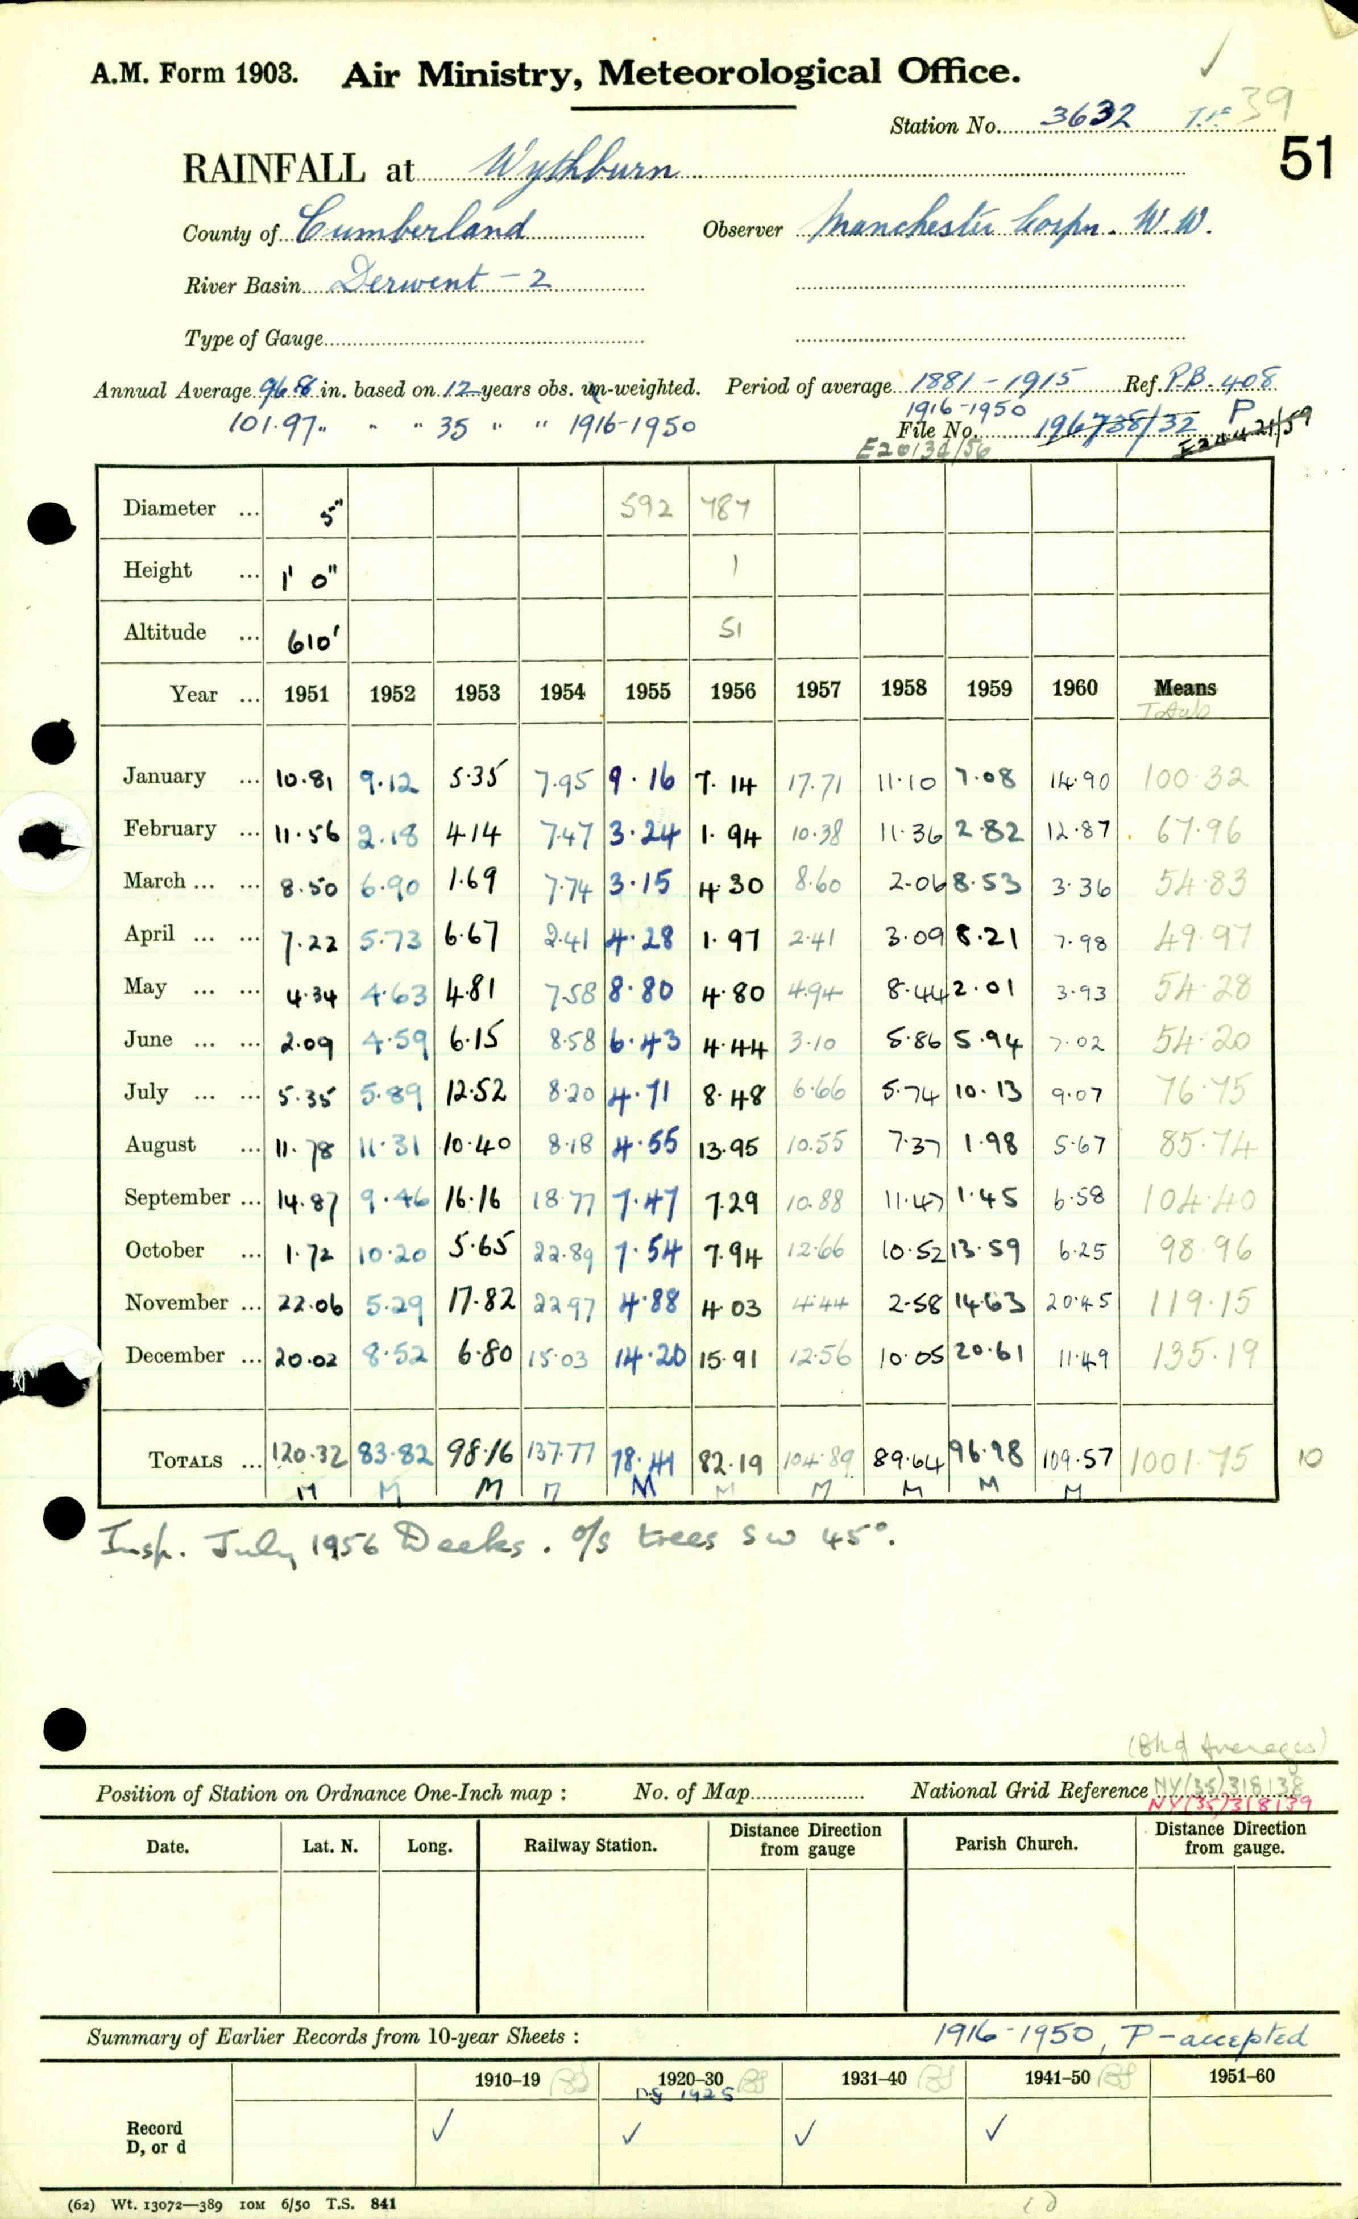 A.M. Form 1903. Air Ministry, Meteorological Office.
39
Station No. 3632
51
RAINFALL at Wythburn
County of Cumberland Observer Manchester Corpn. W.W.
River Basin Derwent - 2
Type of Gauge
Annual Average 96.8 in. based on 12 years obs. un-weighted. Period of average 1881-1915 Ref. P.B. 408
1916-1950
101.97 " " " 35 " " 1916-1950 File No. 196738/32 P
E20134/56 E24421/59
Diameter ... 5" 592 787
Height ... 1' 0" 1
Altitude ... 610' 51
Year ... 1951 1952 1953 1954 1955 1956 1957 1958 1959 1960 Means
Totals
January ... 10.81 9.12 5.35 7.95 9.16 7.14 17.71 11.10 7.08 14.90 100.32
February ... 11.56 2.18 4.14 7.47 3.24 1.94 10.38 11.36 2.82 12.87 67.96
March ... ... 8.50 6.90 1.69 7.74 3.15 4.30 8.60 2.06 8.53 3.36 54.83
April ... ... 7.22 5.73 6.67 2.41 4.28 1.97 2.41 3.09 8.21 7.98 49.97
May ... ... 4.34 4.63 4.81 7.58 8.80 4.80 4.94 8.44 2.01 3.93 54.28
June ... ... 2.09 4.59 6.15 8.58 6.43 4.44 3.10 5.86 5.94 7.02 54.20
July ... ... 5.35 5.89 12.52 8.20 4.71 8.48 6.66 5.74 10.13 9.07 76.75
August ... 11.78 11.31 10.40 8.18 4.55 13.95 10.55 7.37 1.98 5.67 85.74
September ... 14.87 9.46 16.16 18.77 7.47 7.29 10.88 11.47 1.45 6.58 104.40
October ... 1.72 10.20 5.65 22.89 7.54 7.94 12.66 10.52 13.59 6.25 98.96
November ... 22.06 5.29 17.82 22.97 4.88 4.03 4.44 2.58 14.63 20.45 119.15
December ... 20.02 8.52 6.80 15.03 14.20 15.91 12.56 10.05 20.61 11.49 135.19
TOTALS ... 120.32 83.82 98.16 137.77 78.41 82.19 104.89 89.64 96.98 109.57 1001.75 10
M M M M M M M M M M
Insp. July 1956 Deeks. o/s trees SW 45°.
(Bkd Averages)
Position of Station on Ordnance One-Inch map : No. of Map National Grid Reference NY(35)318138
NY(35)318139
Date. Lat. N. Long. Railway Station. Distance Direction from gauge Parish Church. Distance Direction from gauge.
Summary of Earlier Records from 10-year Sheets : 1916-1950, P-accepted
1910–19 1920–30 1931–40 1941–50 1951–60
1925
Record
D, or d
(62) Wt. 13072—389 10M 6/50 T.S. 841
10